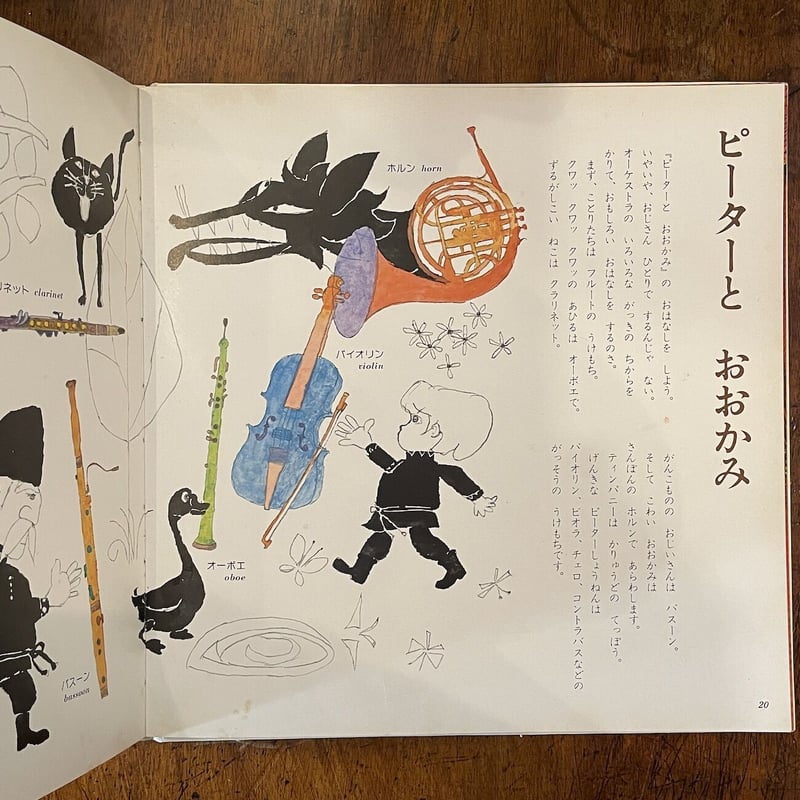 ピーターと おおかみ
『ピーターと おおかみ』の おはなしを しよう。
いやいや、おじさん ひとりで するんじゃ ない。
オーケストラの いろいろな がっきの ちからを
かりて、おもしろい おはなしを するのさ。
まず、ことりたちは フルートの うけもち。
クワッ クワッ クワッの あひるは オーボエで、
ずるがしこい ねこは クラリネット。
がんこものの おじいさんは バスーン。
そして こわい おおかみは
さんぼんの ホルンで あらわします。
ティンパニーは かりゅうどの てっぽう。
げんきな ピーターしょうねんは
バイオリン、ビオラ、チェロ、コントラバスなどの
がっそうの うけもちです。
ホルン horn
バイオリン
violin
オーボエ
oboe
リネット clarinet
バスーン
bassoon
20